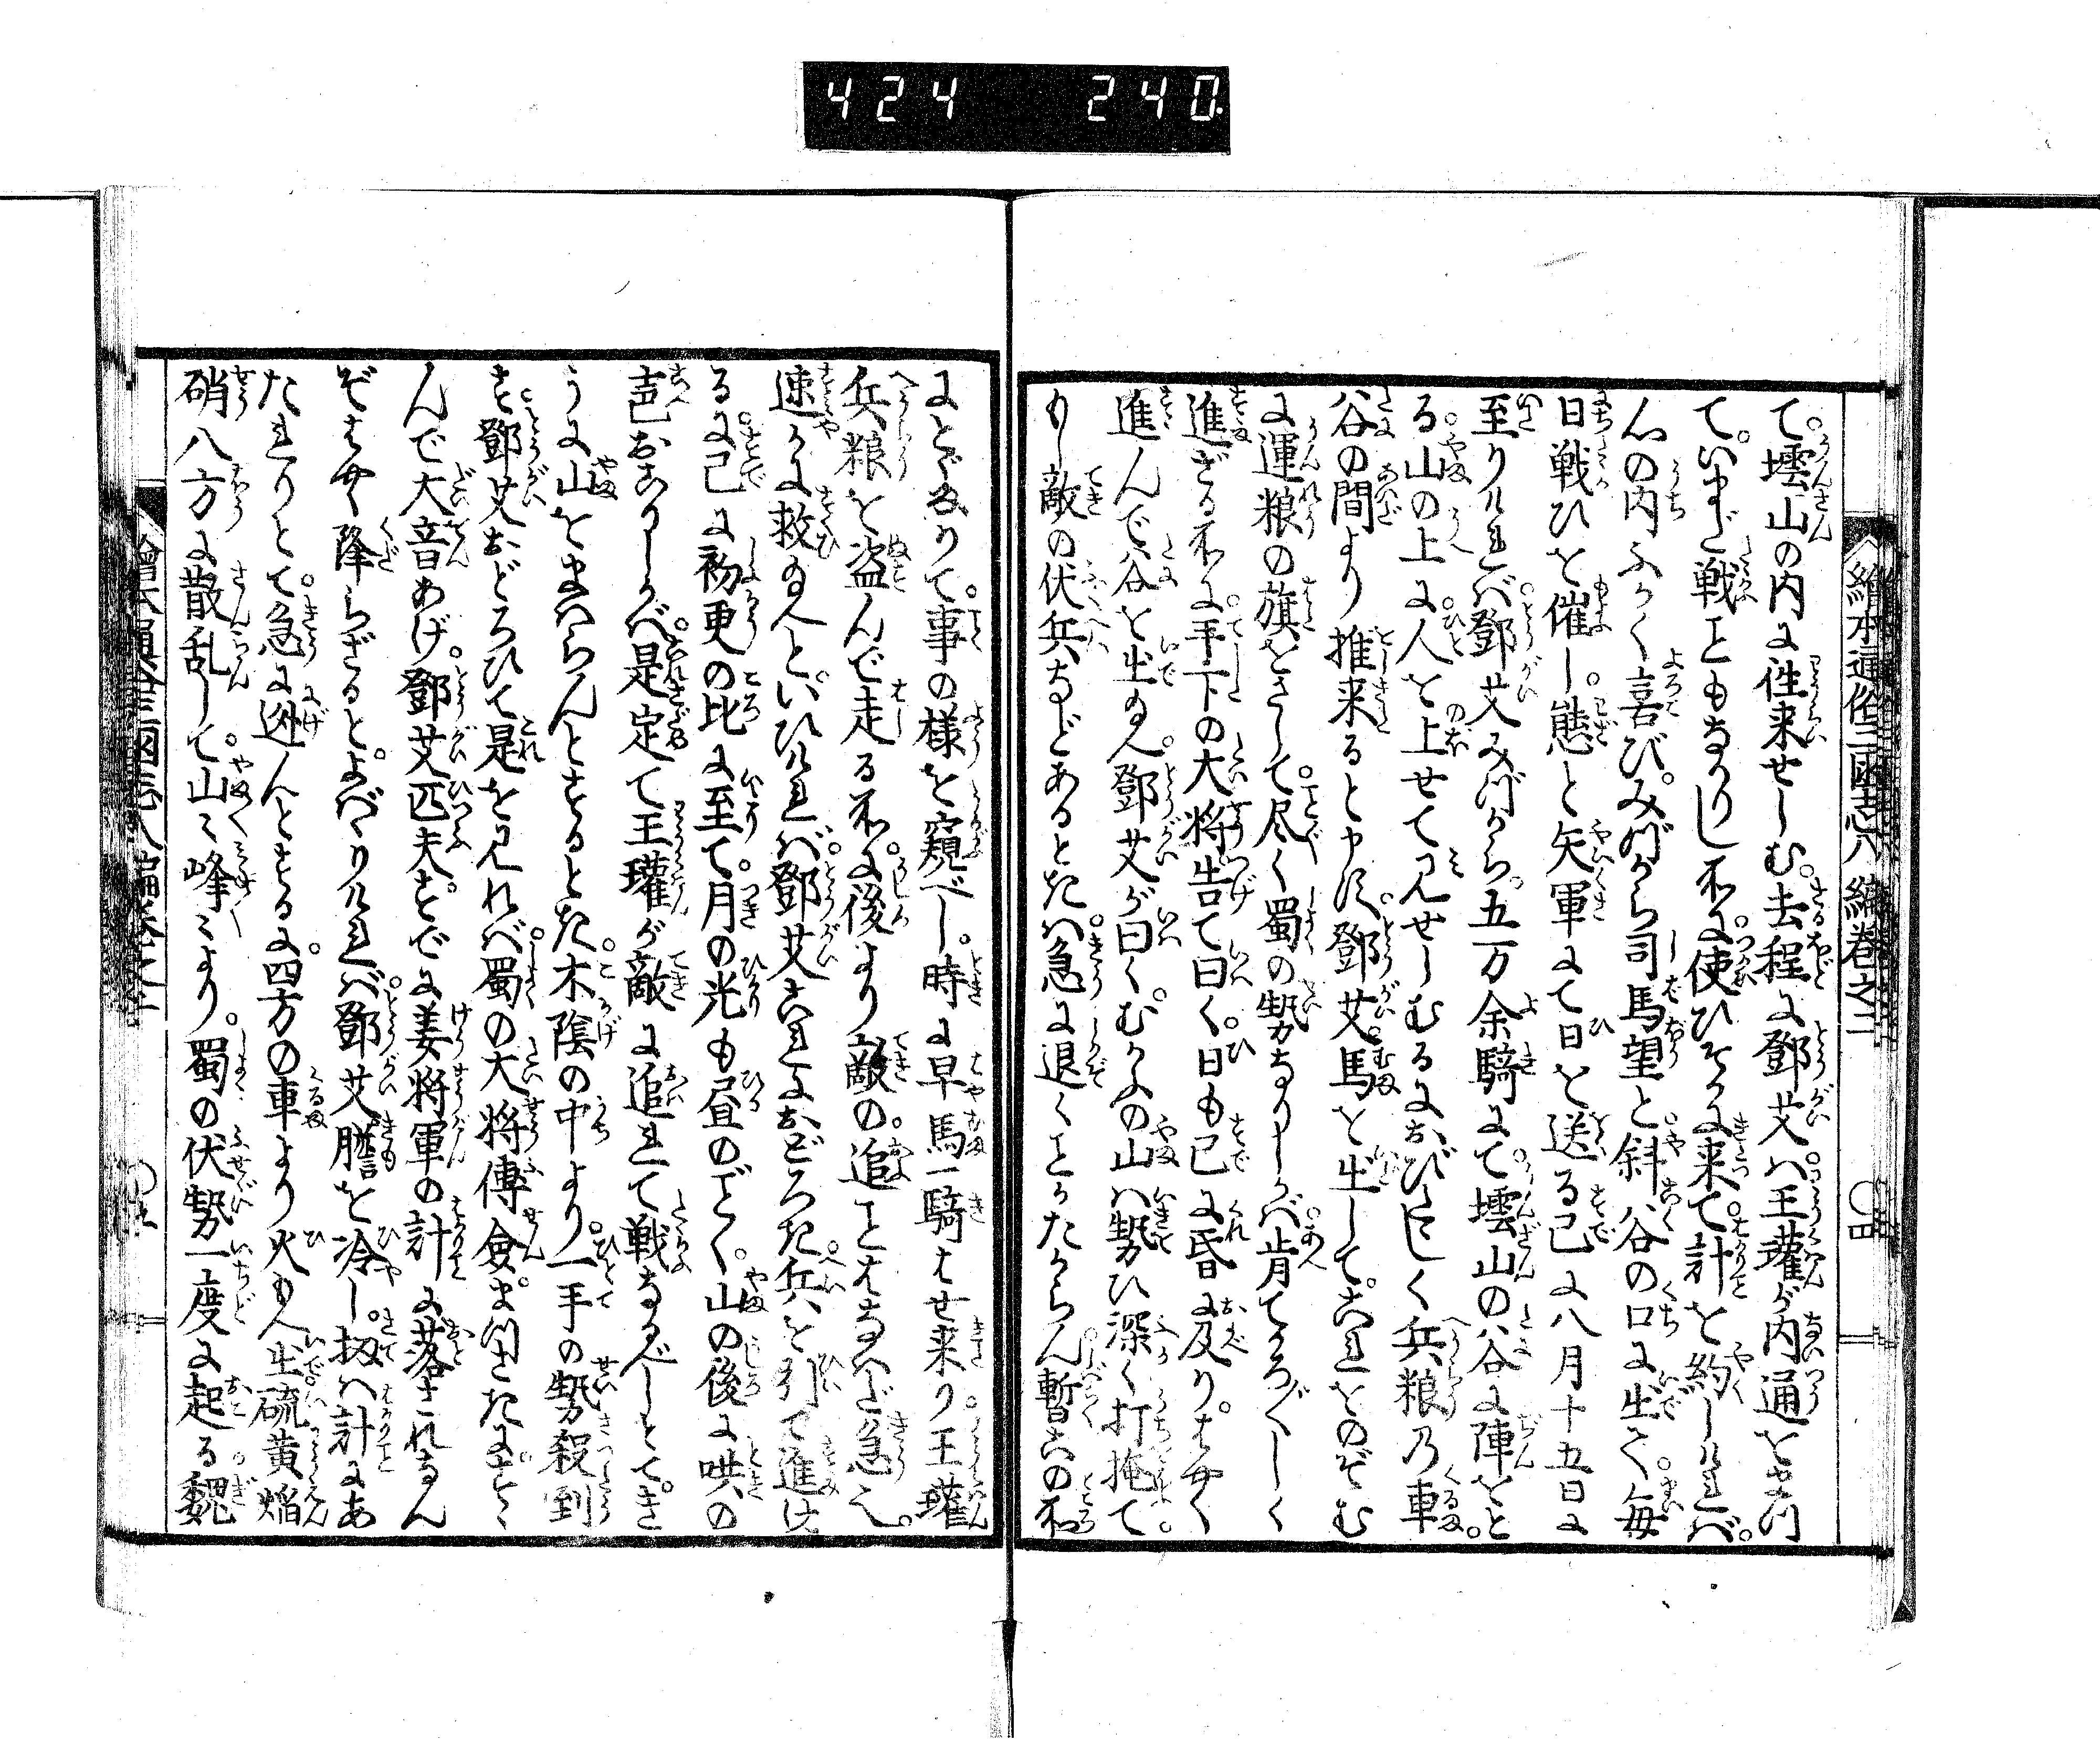 424 240
繪本通俗三國志八編巻之二 〇四
て。壜山の内に往来せしむ。去程に鄧艾ハ王瓘が内通をまつ
て。いまだ戦ともなかりし所に。使ひそかに来て。計を約しければ。
心の内ふかく喜び。みづから司馬望と。斜谷の口に出て。毎
日戦ひを催し。態と矢軍にて日を送る。已に八月十五日に
至りければ。鄧艾みづから。五万余騎にて。壜山の谷に陣をと
る。山の上に。人を上せて見せしむるにおびたゝしく兵粮の車。
谷の間より推来ると申す。鄧艾。馬を出して。これをのぞむ
に運粮の旗をさして。尽く蜀の勢なりしかば。肯てかろ〴〵しく
進ざる所に。手下の大将告て曰く。日も已に昏に及り。はやく
進んで谷を出給へ。鄧艾が曰く。むかふの山ハ勢ひ深く打掩て
もし敵の伏兵などあるときハ。急に退くことかたからん。暫この所
にとゞまりて。事の様を窺べし。時に早馬一騎はせ来り。王瓘
兵粮を盗んで走る所に。後より敵の。追ことはなはだ急也。
速かに救給へと。いひければ。鄧艾これにおどろき。兵を引て進け
る。已に初更の比に至て。月の光も昼のごとく。山の後に哄の
声おこりしかば。是定て王瓘が敵に追れて戦なるべしとて。き
うに山をまハらんとするとき。木陰の中より。一手の勢殺到
す。鄧艾おどろひて是を見れば。蜀の大将傅僉。まつさきにすゝ
んで大音あげ。鄧艾匹夫。すでに姜将軍の計に落されなん
ぞはやく降らざるとよばゝりければ。鄧艾膽を冷し。扨ハ計にあ
たれりとて。急に逃んとするに。四方の車より火もへ出。硫黄焔
硝八方に散乱して。山々峰々より。蜀の伏勢一度に起る。魏